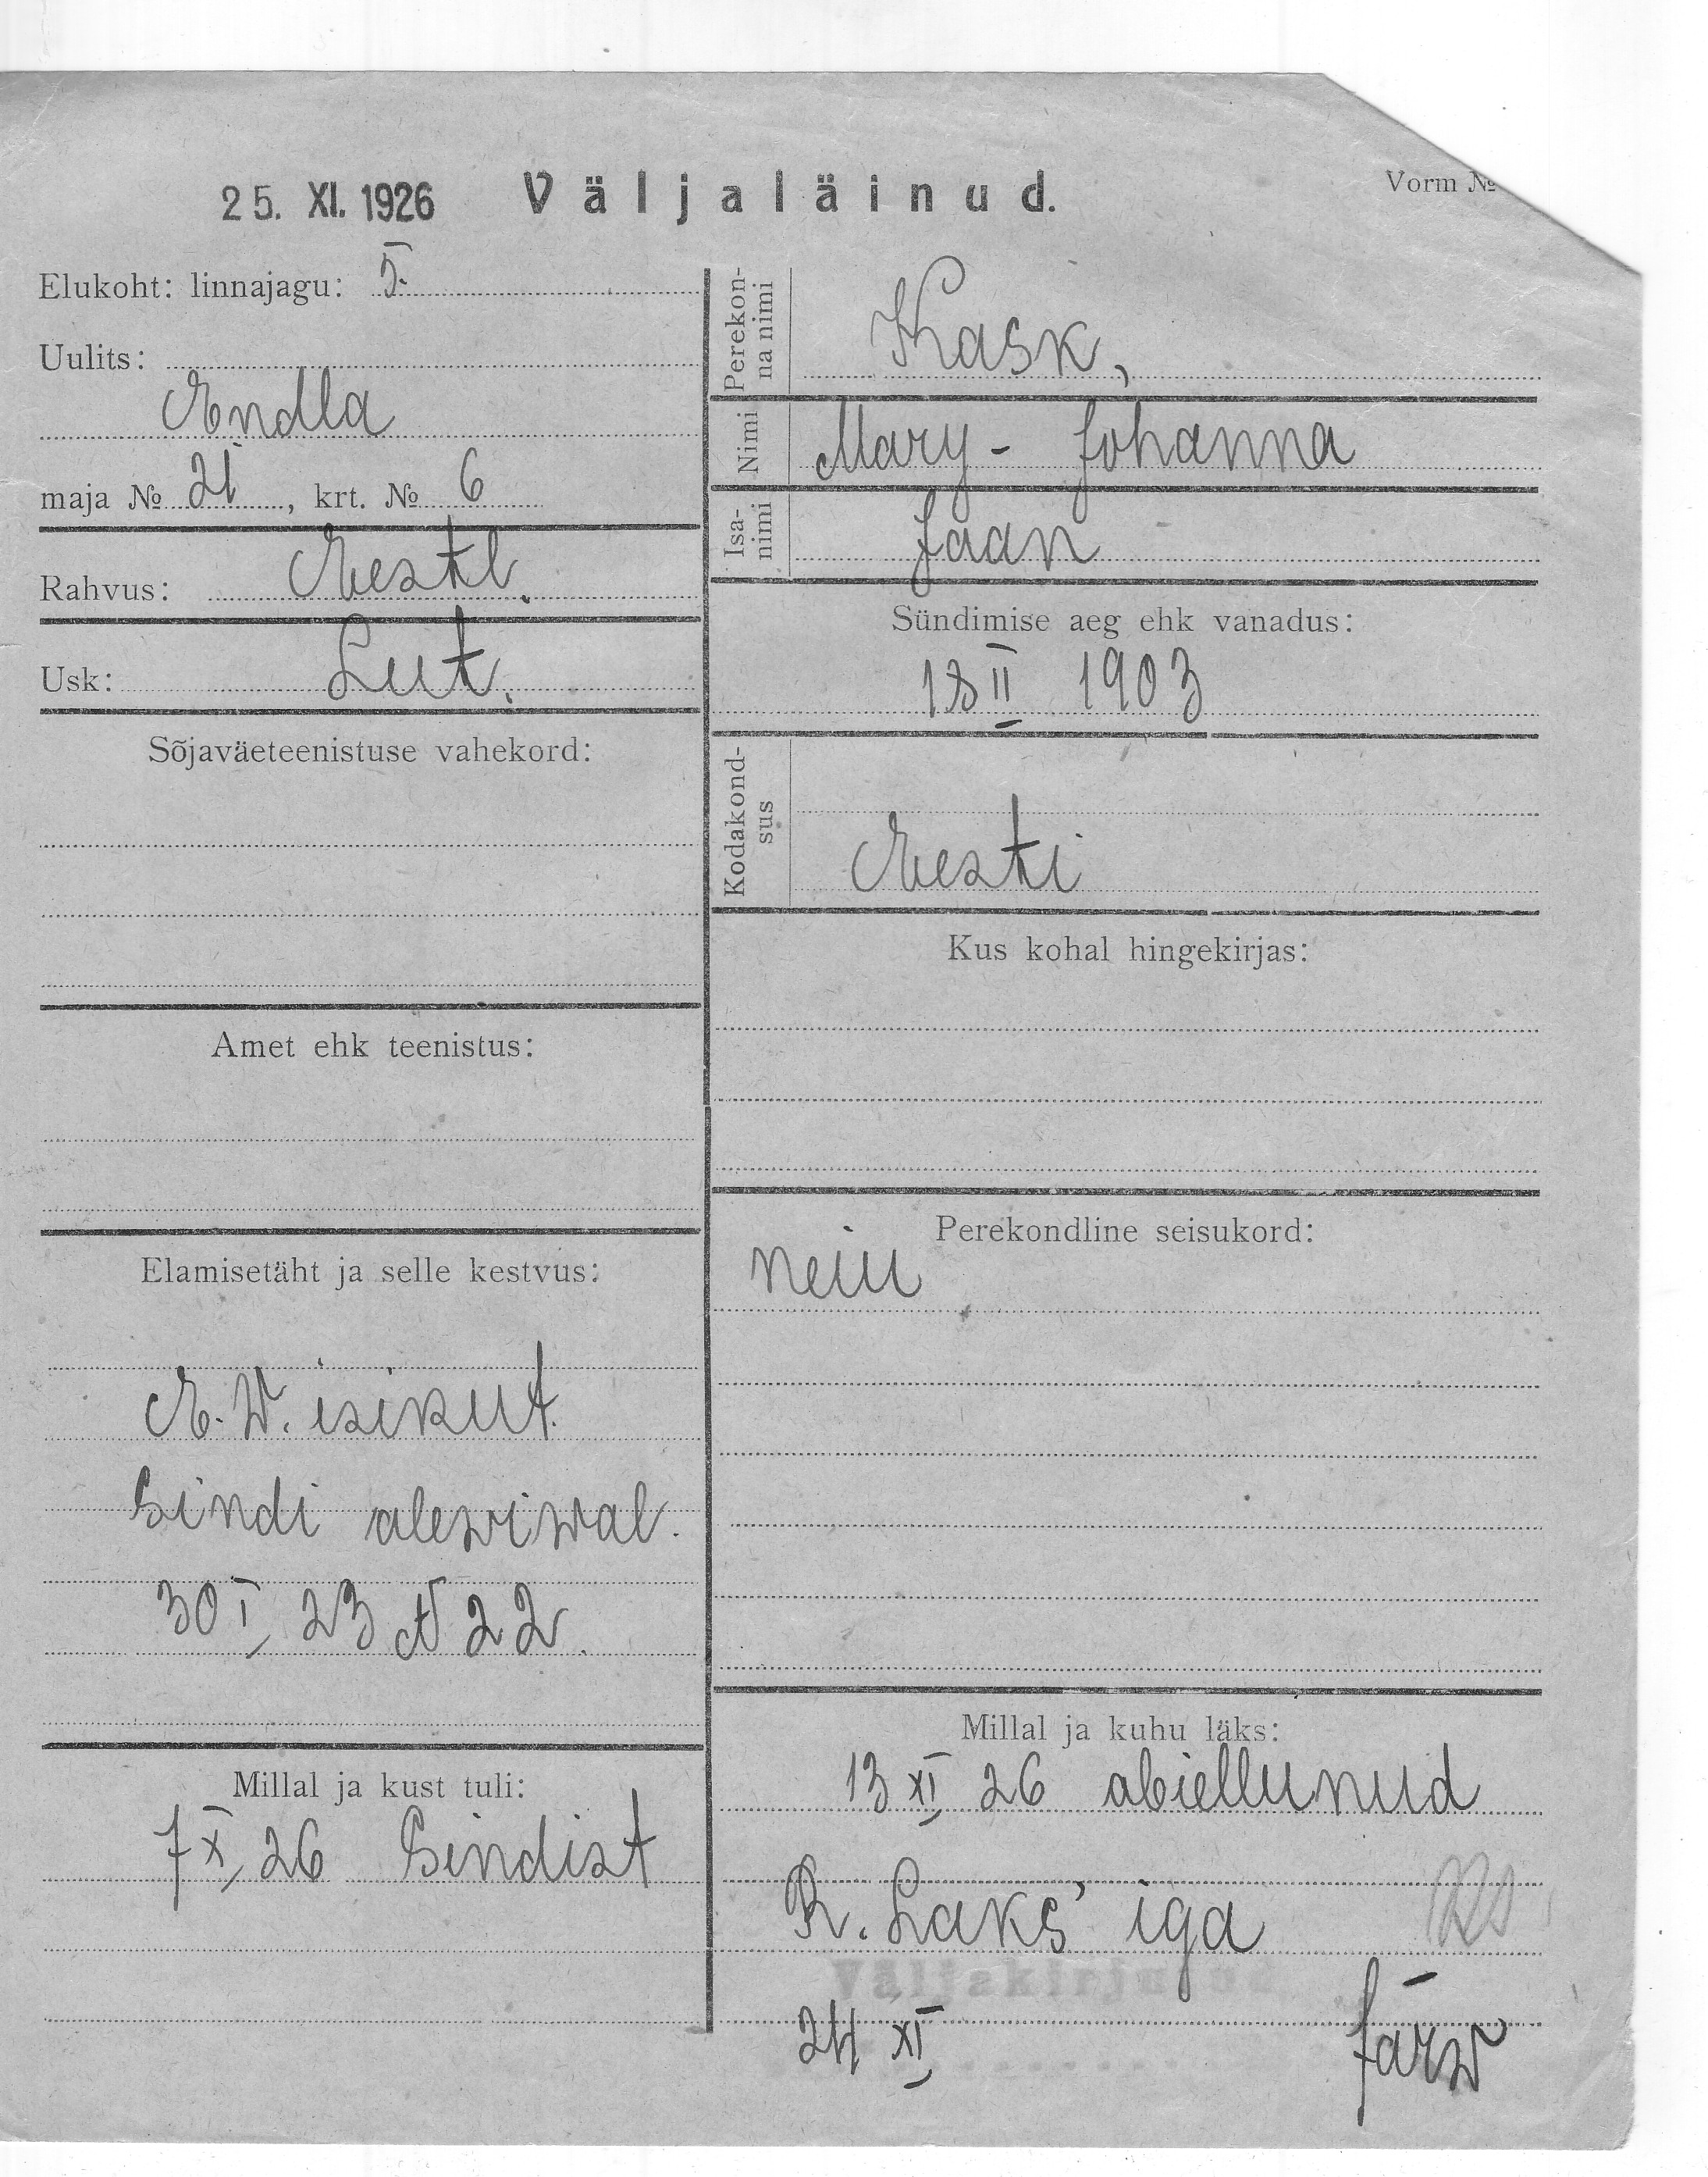 25. XI. 1926
Väljaläinud.
Vorm №
Elukoht: linnajagu: I.
Uulits:
Endla
maja № 21, krt. № 6
Rahvus: Eestl.
Usk: Lut.
Sõjaväeteenistuse vahekord:
Amet ehk teenistus:
Elamisetäht ja selle kestvus:
E. W. isikut.
Sindi alewiwal.
30 I 23 N 22.
Millal ja kust tuli:
7 X 26 Sindist
Perekon-
na nimi
Kask,
Nimi
Mary - Johanna
Isa-
nimi
Jaan
Sündimise aeg ehk vanadus:
18 II 1903
Kodakond-
sus
Eesti
Kus kohal hingekirjas:
Perekondline seisukord:
neiu
Millal ja kuhu läks:
13 XI 26 abiellunud
R. Laks' iga
Väljakirjutud
24 XI
Järw